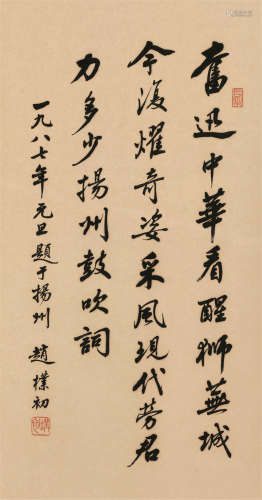 奮迅中華看醒獅蕪城
今復耀奇姿采風現代勞君
力多少揚州鼓吹詞
一九八七年元旦題于揚州 趙樸初